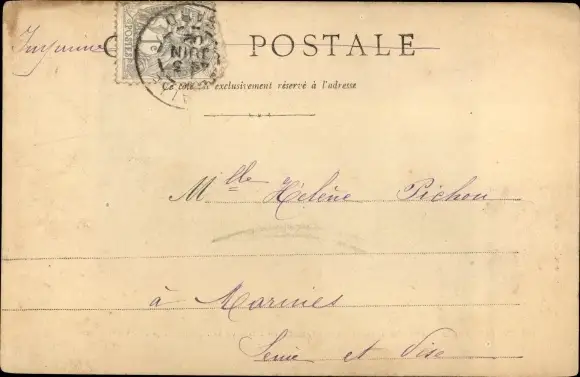 Imprimé
POSTALE
POSTES
JUIN
Ce côté est exclusivement réservé à l'adresse
Mlle Hélène Pichou
à Marines
Seine et Oise